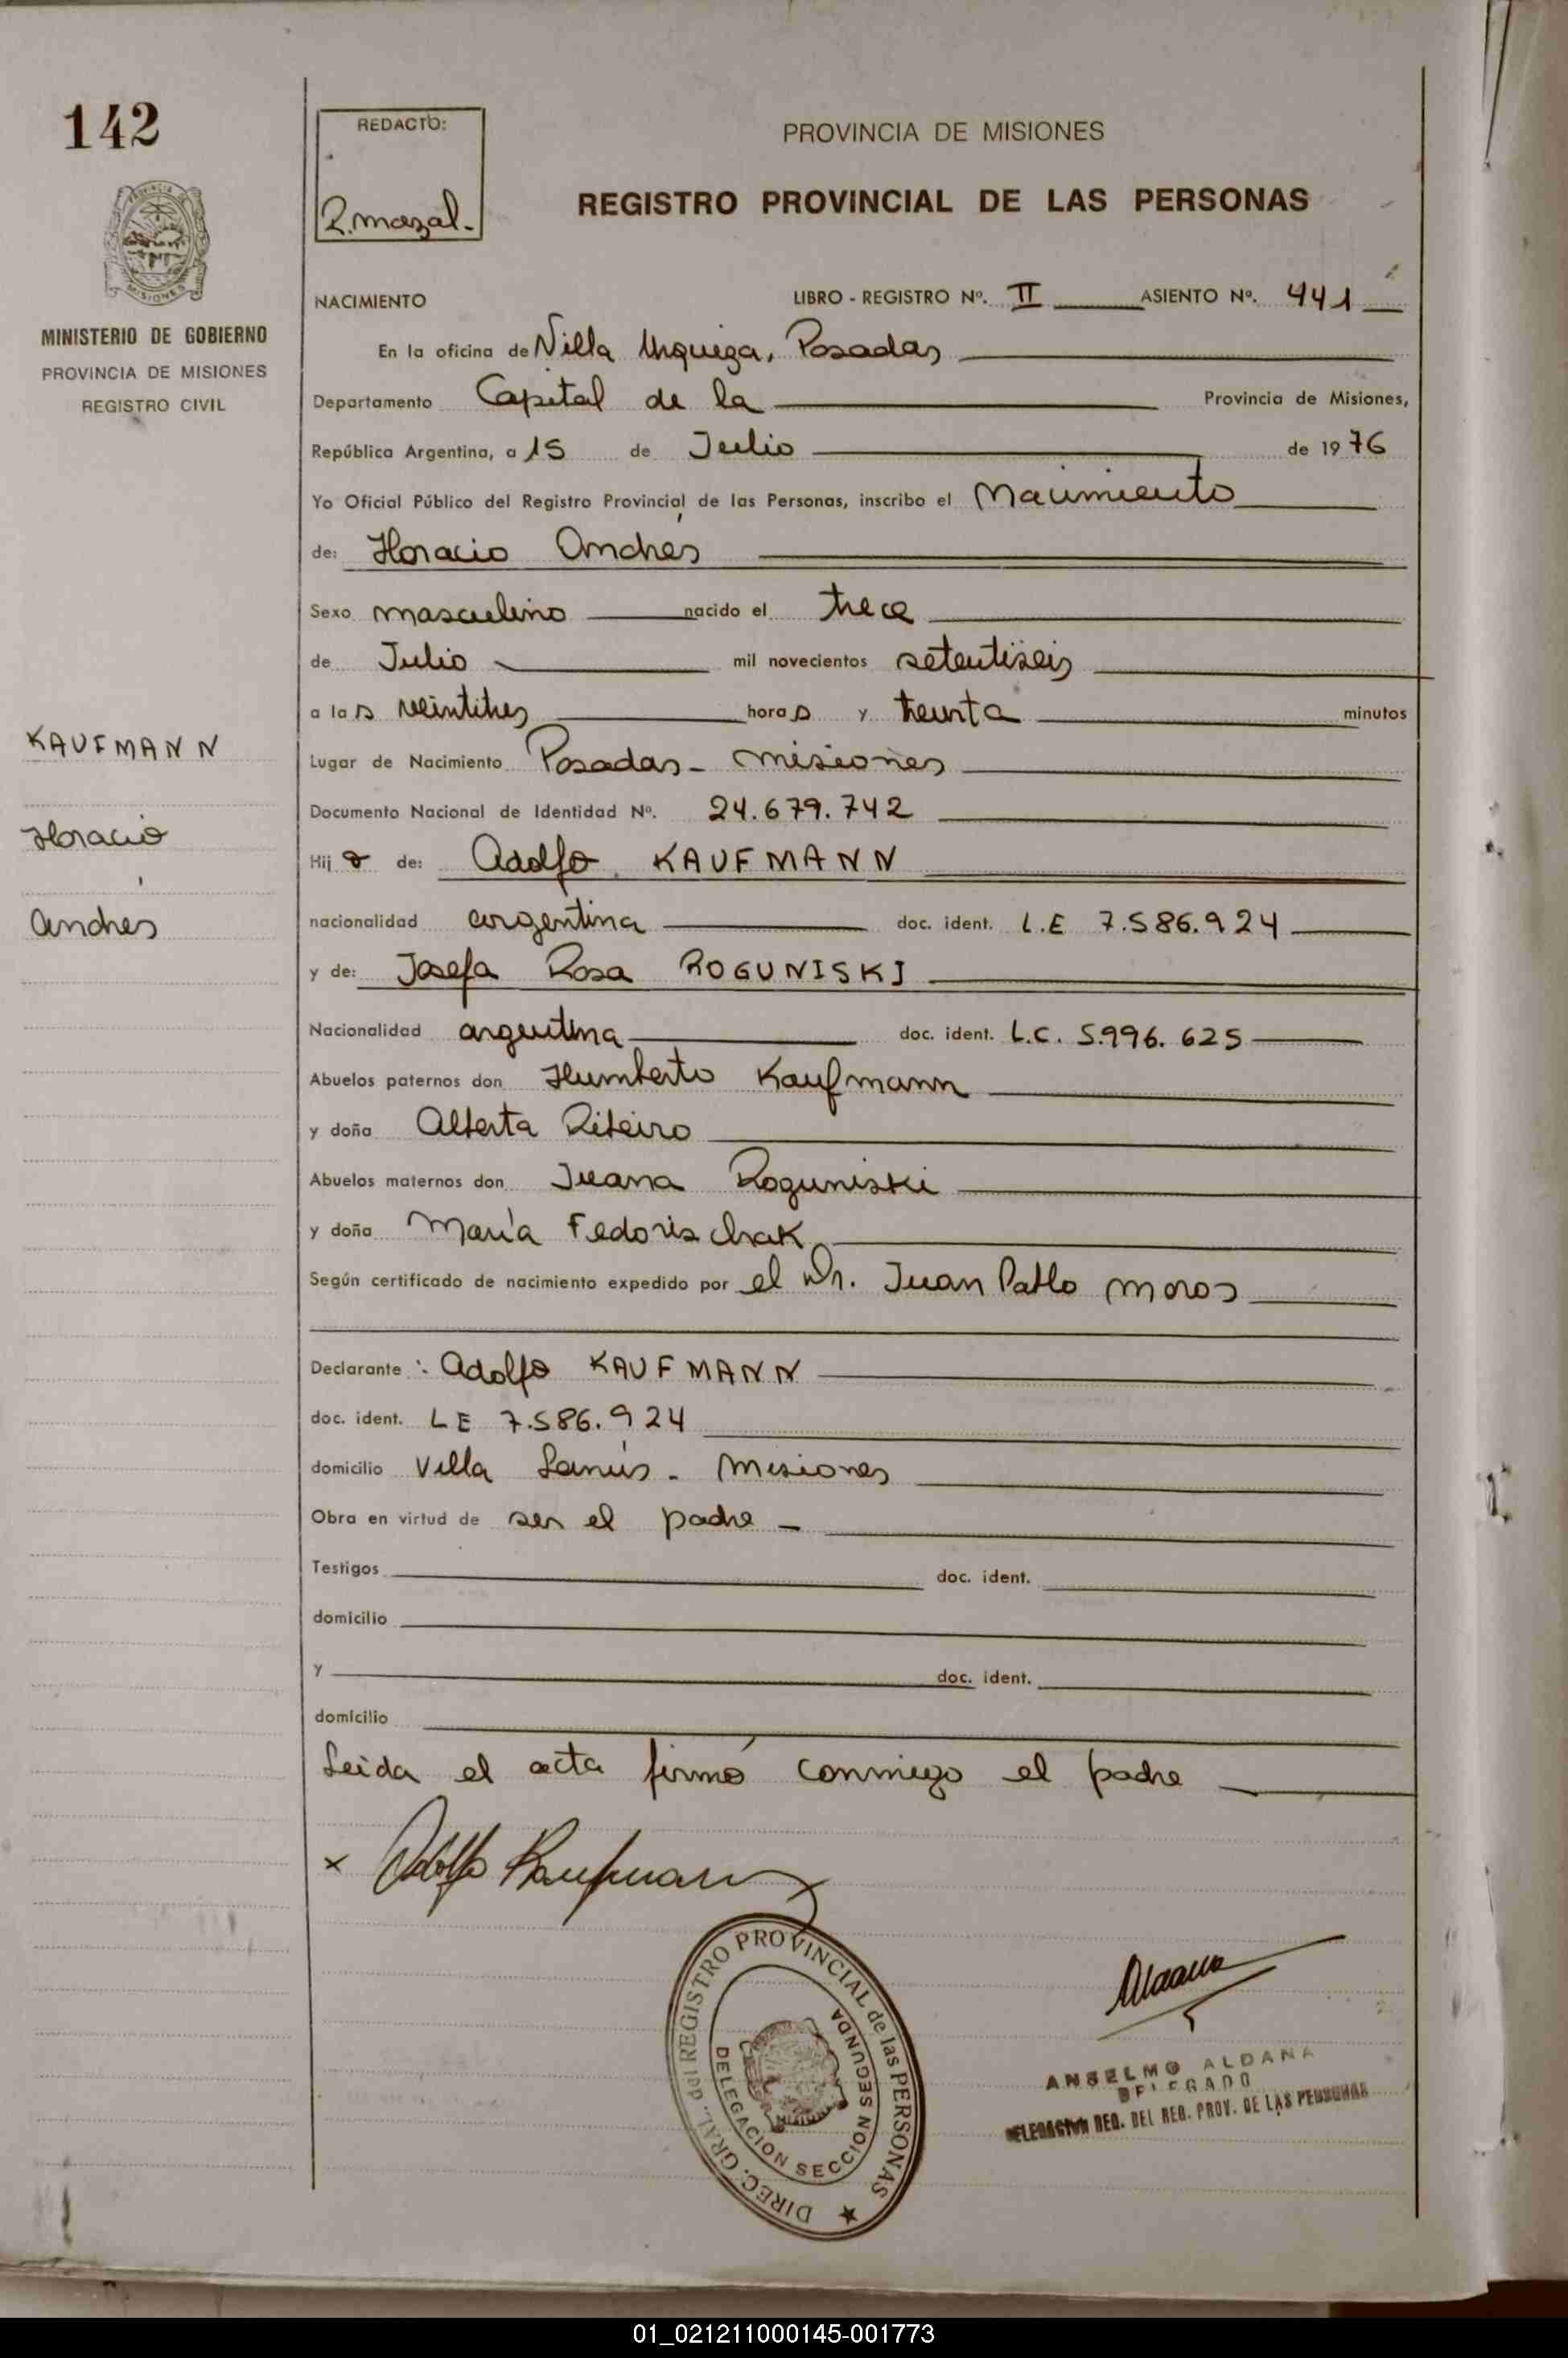 142
REDACTO:
R. mazal.
PROVINCIA DE MISIONES
REGISTRO PROVINCIAL DE LAS PERSONAS
MISIONES
MINISTERIO DE GOBIERNO
PROVINCIA DE MISIONES
REGISTRO CIVIL
KAUFMANN
Horacio
Andrés
NACIMIENTO LIBRO - REGISTRO Nº. II ASIENTO Nº. 441
En la oficina de Villa Urquiza, Posadas
Departamento Capital de la Provincia de Misiones,
República Argentina, a 15 de Julio de 1976
Yo Oficial Público del Registro Provincial de las Personas, inscribo el Nacimiento
de: Horacio Andrés
Sexo masculino nacido el trece
de Julio mil novecientos setentiseis
a las veintitres horas y treinta minutos
Lugar de Nacimiento Posadas - Misiones
Documento Nacional de Identidad Nº. 24.679.742
Hijo de: Adolfo KAUFMANN
nacionalidad argentina doc. ident. L.E 7.586.924
y de: Josefa Rosa ROGUNISKI
Nacionalidad argentina doc. ident. L.C. 5.996.625
Abuelos paternos don Humberto Kaufmann
y doña Alberta Ribeiro
Abuelos maternos don Juana Roguniski
y doña María Fedorischak
Según certificado de nacimiento expedido por el Dr. Juan Pablo Moros
Declarante : Adolfo KAUFMANN
doc. ident. LE 7.586.924
domicilio Villa Lanús - Misiones
Obra en virtud de ser el padre -
Testigos doc. ident.
domicilio
y doc. ident.
domicilio
Leida el acta firmó conmigo el padre
x Adolfo Kaufmann
DIREC. GRAL. del REGISTRO PROVINCIAL de las PERSONAS
DELEGACION SECCION SEGUNDA
MISIONES
Aldana
ANSELMO ALDANA
DELEGADO
DELEGACION REG. DEL REG. PROV. DE LAS PERSONAS
01_021211000145-001773